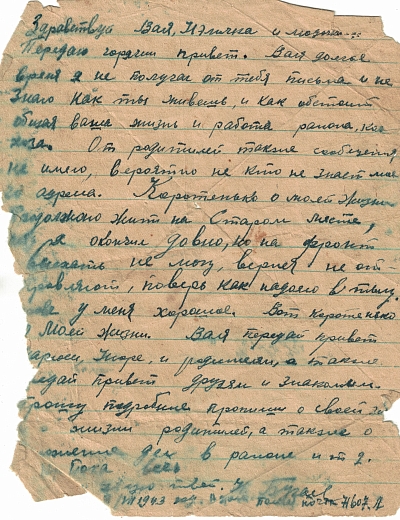 Здравствуй Вая,
Передаю горячий привет. Вая долгое
время я не получаю от тебя письма и не
знаю как ты живешь, и как обстоит
общая ваша жизнь и работа района, кол
хоза. От родителей также сообчения
не имею, вероятно не кто не знает мое
го адреса. Коротенько о моей жизни
продолжаю жить на Старом месте,
я окончил довно, но на фронт
не могу, верней не от-
правляют, поверь как надоело в тылу.
у меня хорошое. Вот коротенько
о моей жизни. Вая передай привет
и родителям, а также
передай привет друзьям и знакомым.
подробние пропиши о своей
жизни родителей, а также о
дел в районе и т д.
Пока всё
ответ.
1943 почта